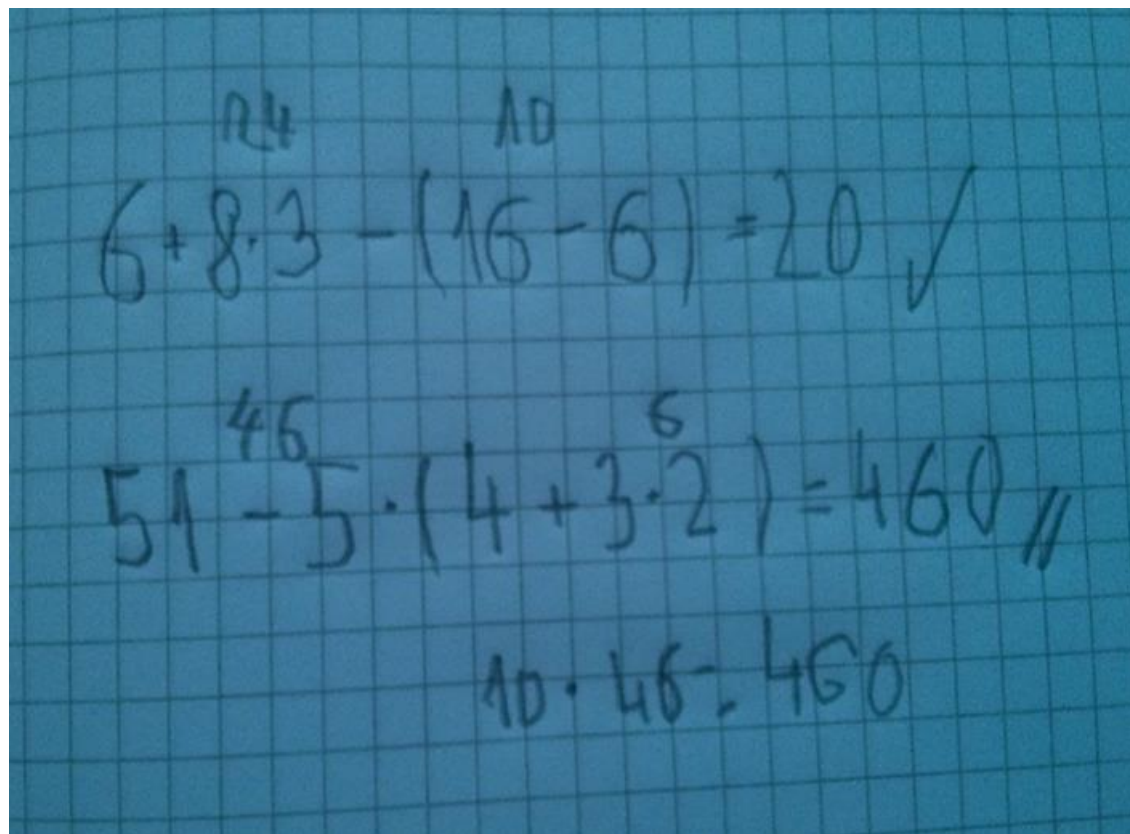 24 10
6 + 8 · 3 - (16 - 6) = 20 ✓
46 6
51 - 5 · (4 + 3 · 2) = 460 //
10 · 46 = 460